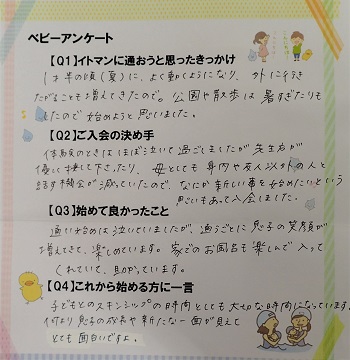 ベビーアンケート
【Q1】イトマンに通おうと思ったきっかけ
1才半の頃(夏)に、よく動くようになり、外に行き
たがることも増えてきたので。公園や散歩は暑すぎたりも
したので始めようと思いました。
【Q2】ご入会の決め手
体験のときはほぼ泣いて過ごしましたが先生方が
優しく接して下さったり、母としても身内や友人以外の人と
話す機会が減っていたので、なにか新しい事を始めたいという
思いもあって入会しました。
【Q3】始めて良かったこと
通い始めは泣いていましたが、通うごとに息子の笑顔が
増えてきて、楽しめています。家でのお風呂も楽しんで入って
くれていて、助かっています。
【Q4】これから始める方に一言
子どもとのスキンシップの時間としても大切な時間になっています。
何より息子の成長や新たな一面が見えて
とても面白いですよ。